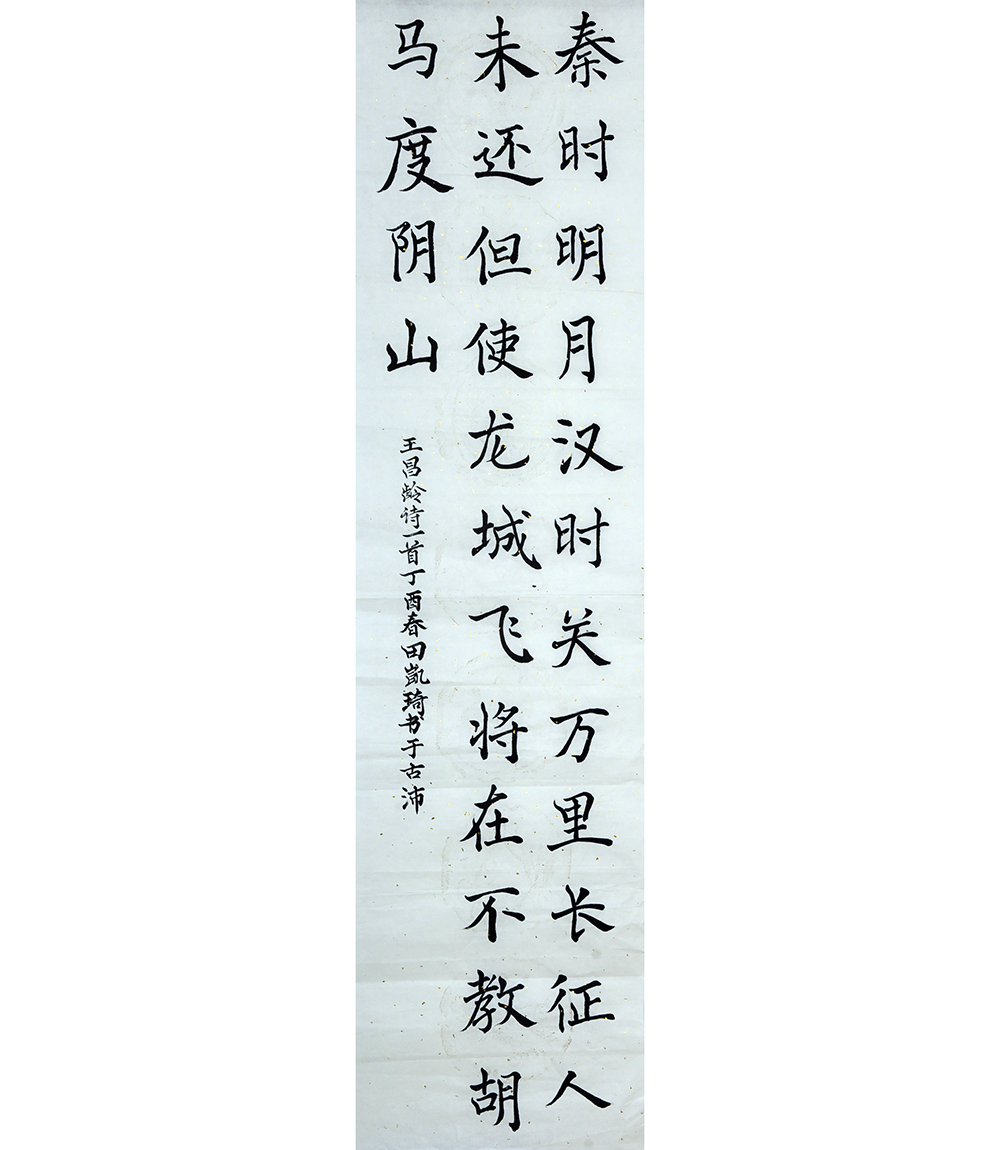 秦时明月汉时关万里长征人
未还但使龙城飞将在不教胡
马度阴山
王昌龄诗一首丁酉春田凯琦书于古沛